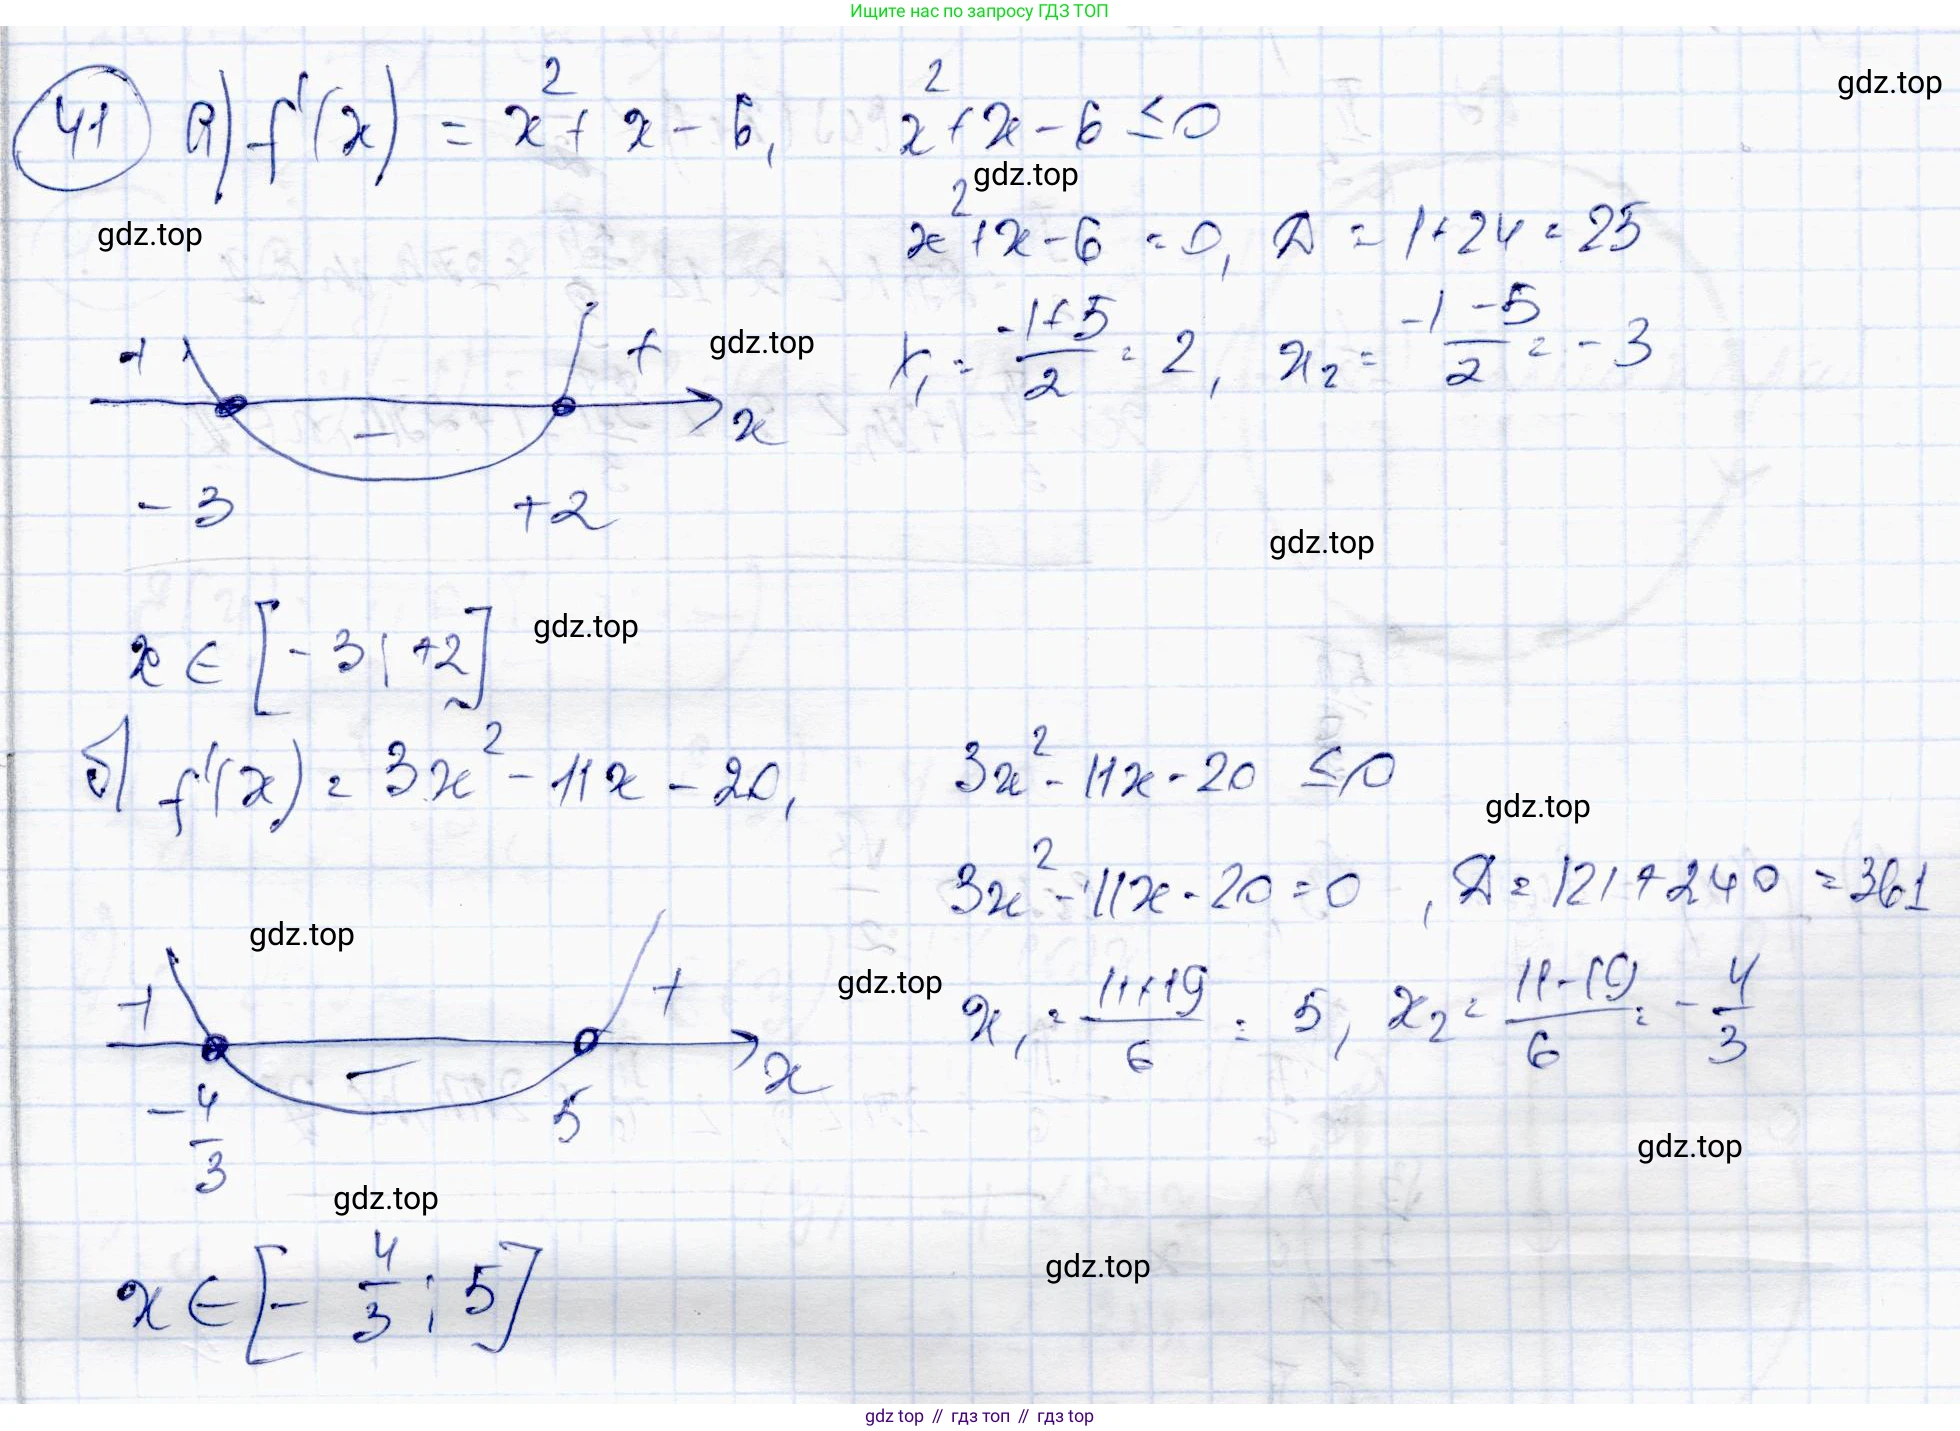 Ищите нас по запросу ГДЗ ТОП
41 а) f'(x) = x² + x - 6, x² + x - 6 ≤ 0
gdz.top
gdz.top
gdz.top
x² + x - 6 = 0, D = 1 + 24 = 25
+ - + x
gdz.top
x₁ = (-1+5)/2 = 2, x₂ = (-1-5)/2 = -3
-3 +2
gdz.top
x ∈ [-3; +2]
gdz.top
б) f'(x) = 3x² - 11x - 20, 3x² - 11x - 20 ≤ 0
gdz.top
3x² - 11x - 20 = 0, D = 121 + 240 = 361
gdz.top
+ - + x
gdz.top
x₁ = (11+19)/6 = 5, x₂ = (11-19)/6 = -4/3
-4/3 5
gdz.top
gdz.top
x ∈ [-4/3; 5]
gdz.top
gdz top // гдз топ // гдз top